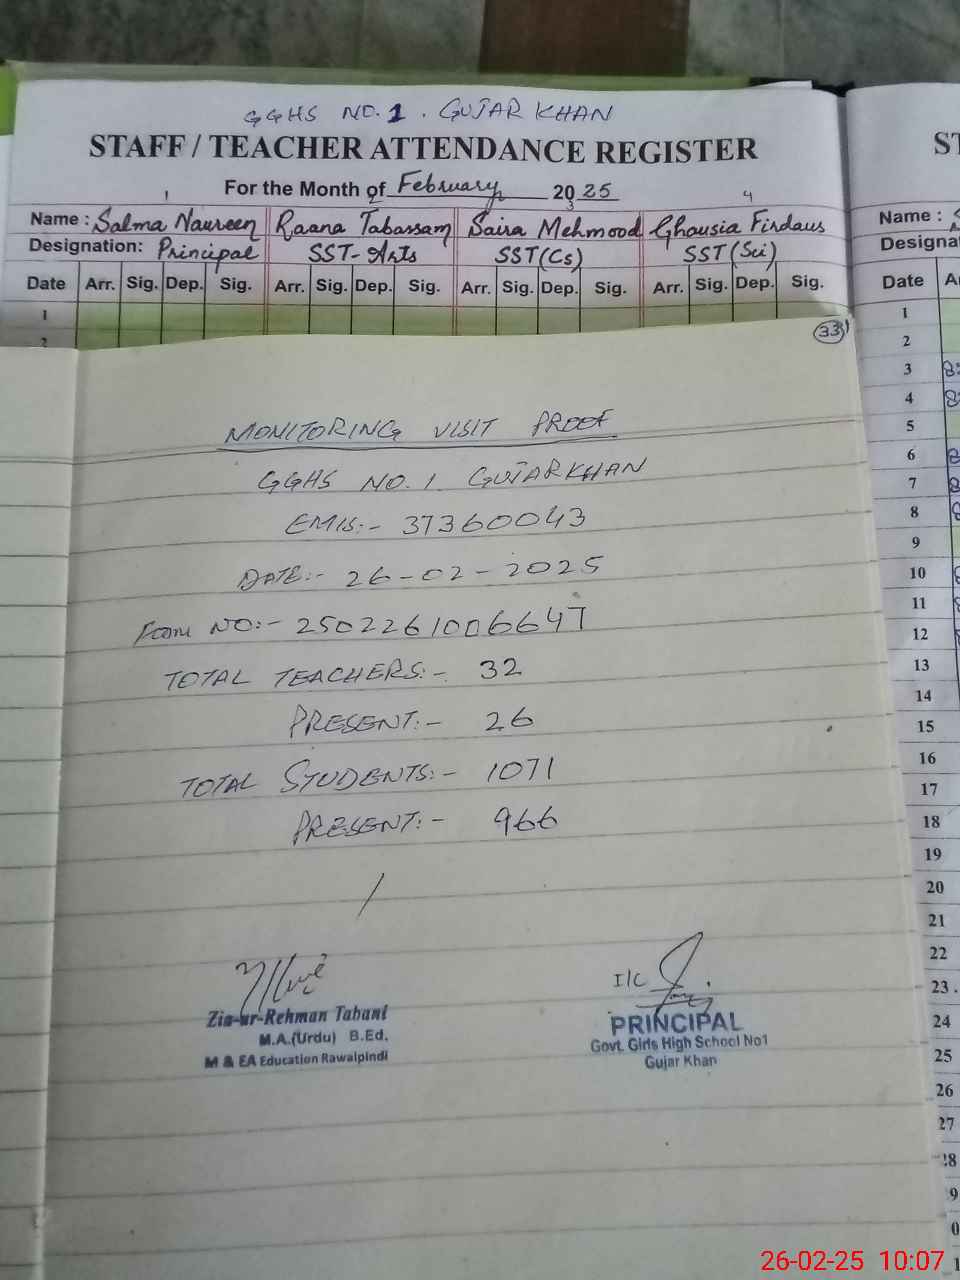 GGHS NO.1. GUJAR KHAN
STAFF / TEACHER ATTENDANCE REGISTER
For the Month of February 2025
1 3 4
Name : Salma Naureen Raana Tabassam Saira Mehmood Ghausia Firdaus
Designation: Principal SST-Arts SST(Cs) SST(Sci)
Date Arr. Sig. Dep. Sig. Arr. Sig. Dep. Sig. Arr. Sig. Dep. Sig. Arr. Sig. Dep. Sig.
1
2
33
MONITORING VISIT PROOF
GGHS NO. 1 GUJARKHAN
EMIS:- 37360043
DATE:- 26-02-2025
Form NO:- 2502261006647
TOTAL TEACHERS:- 32
PRESENT:- 26
TOTAL STUDENTS:- 1071
PRESENT:- 966
/
Zia-ur-Rehman Tabani
M.A.(Urdu) B.Ed.
M & EA Education Rawalpindi
I/C
PRINCIPAL
Govt. Girls High School No1
Gujar Khan
ST
Name :
Designa
Date
1
2
3
4
5
6
7
8
9
10
11
12
13
14
15
16
17
18
19
20
21
22
23
24
25
26
27
28
9
0
1
26-02-25 10:07